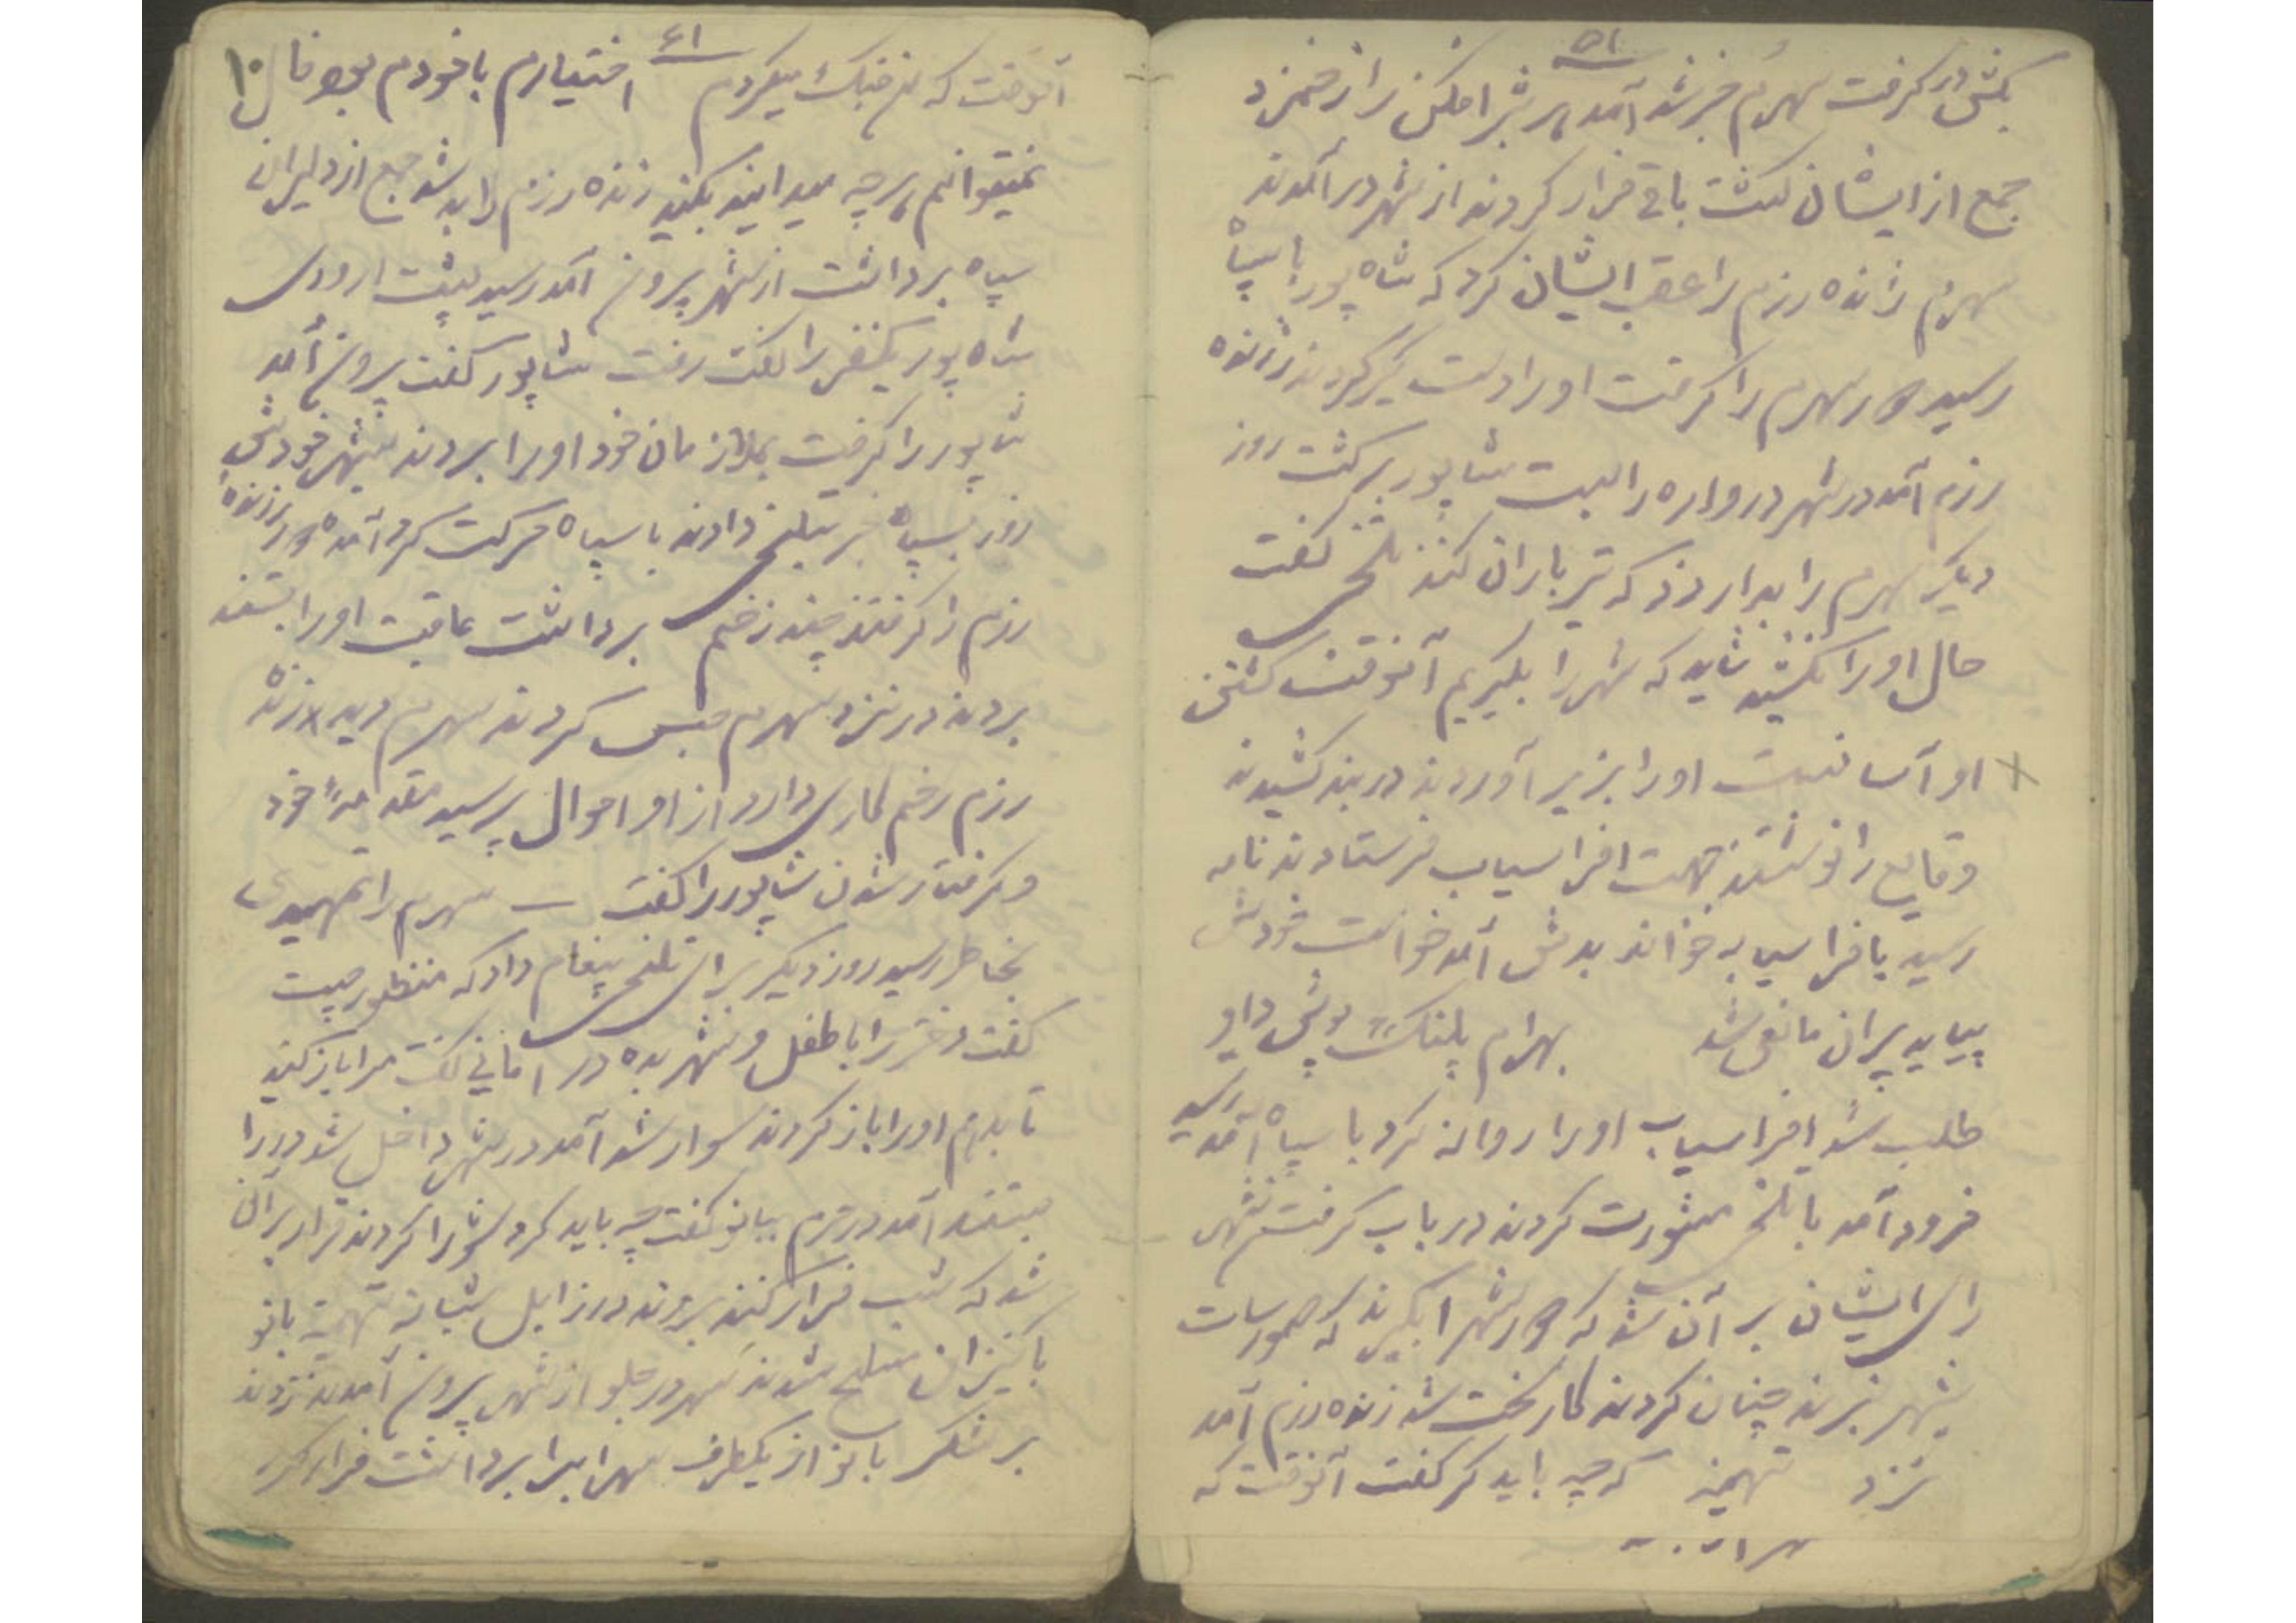 ۵۱
بکش در گرفت سهرم خبر شد آمد هر شیرافکن را زخم زد
جمع از ایشان کشت باقی فرار کردند از شهر در آمدند
سهرم زنده رزم را عقب ایشان کرد که شاه پور با سپاه
رسید دور سهرم را گرفت او را دست گیر کردند زنده
رزم آمد در شهر دروازه را بست شاپور برگشت روز
دیگر سهرم را بدار زدند که تیر باران کنند تلخی گفت
حال او را نکشید شاید که شهر را بگیریم آنوقت کشتن
او آسانست او را بزیر آوردند در بند کشیدند
وقایع را نوشتند جهت افراسیاب فرستادند نامه
رسید بافراسیاب خواند بدش آمد خواست خودش
بیاید پیران مانع شد بهرام پلنگ پوش داو
طلب شد افراسیاب او را روانه کرد با سپاه آمد رسید
فرود آمد با تلخی مشورت کردند در باب گرفتن شهر
رای ایشان بر آن شد که دور شهر را بگیرند که سورسات
بشهر نبرند چنان کردند کار سخت شد زنده رزم آمد
نزد تهمینه که چه باید کر گفت آنوقت که
۶۱
آنوقت که من جنگ میکردم اختیارم با خودم بود حال ۱۰
نمیتوانم هرچه میدانید بکنید زنده رزم لابد شد جمع از دلیران
سپاه برداشت از شهر بیرون آمد رسید پشت اردوی
شاه پور یکنفر را گفت رفت شاپور گفت بیرون آمد
شاپور را گرفت بملازمان خود او را بردند بشهر خودش
زد بسپاه خبر بتلخی دادند با سپاه حرکت کرد آمد دور زنده
رزم را گرفتند چند زخم برداشت عاقبت او را بستند
بردند در نزد سهرم حبس کردند سهرم دید زنده
رزم زخم کاری دارد از او احوال پرسید مقدمه خود
و گرفتار شدن شاپور را گفت سهرم را تمهیدی
بخاطر رسید روز دیگر برای تلخی پیغام داد که منظور چیست
گفت دختر را با طفل و شهر بده در امانی گفت مرا باز کنید
تا بدهم او را باز کردند سوار شد آمد در شهر داخل شد در را
بستند آمد در حرم ببانو گفت چه باید کرد شورا کردند قرار بر آن
شد که شب فرار کنند بروند در زابل شبانه تهمینه بانو
با کنیزان مسلح شدند سهرم در جلو از شهر بیرون آمدند زدند
بر لشکر بانو از یکطرف سهراب را برداشت فرار کرد